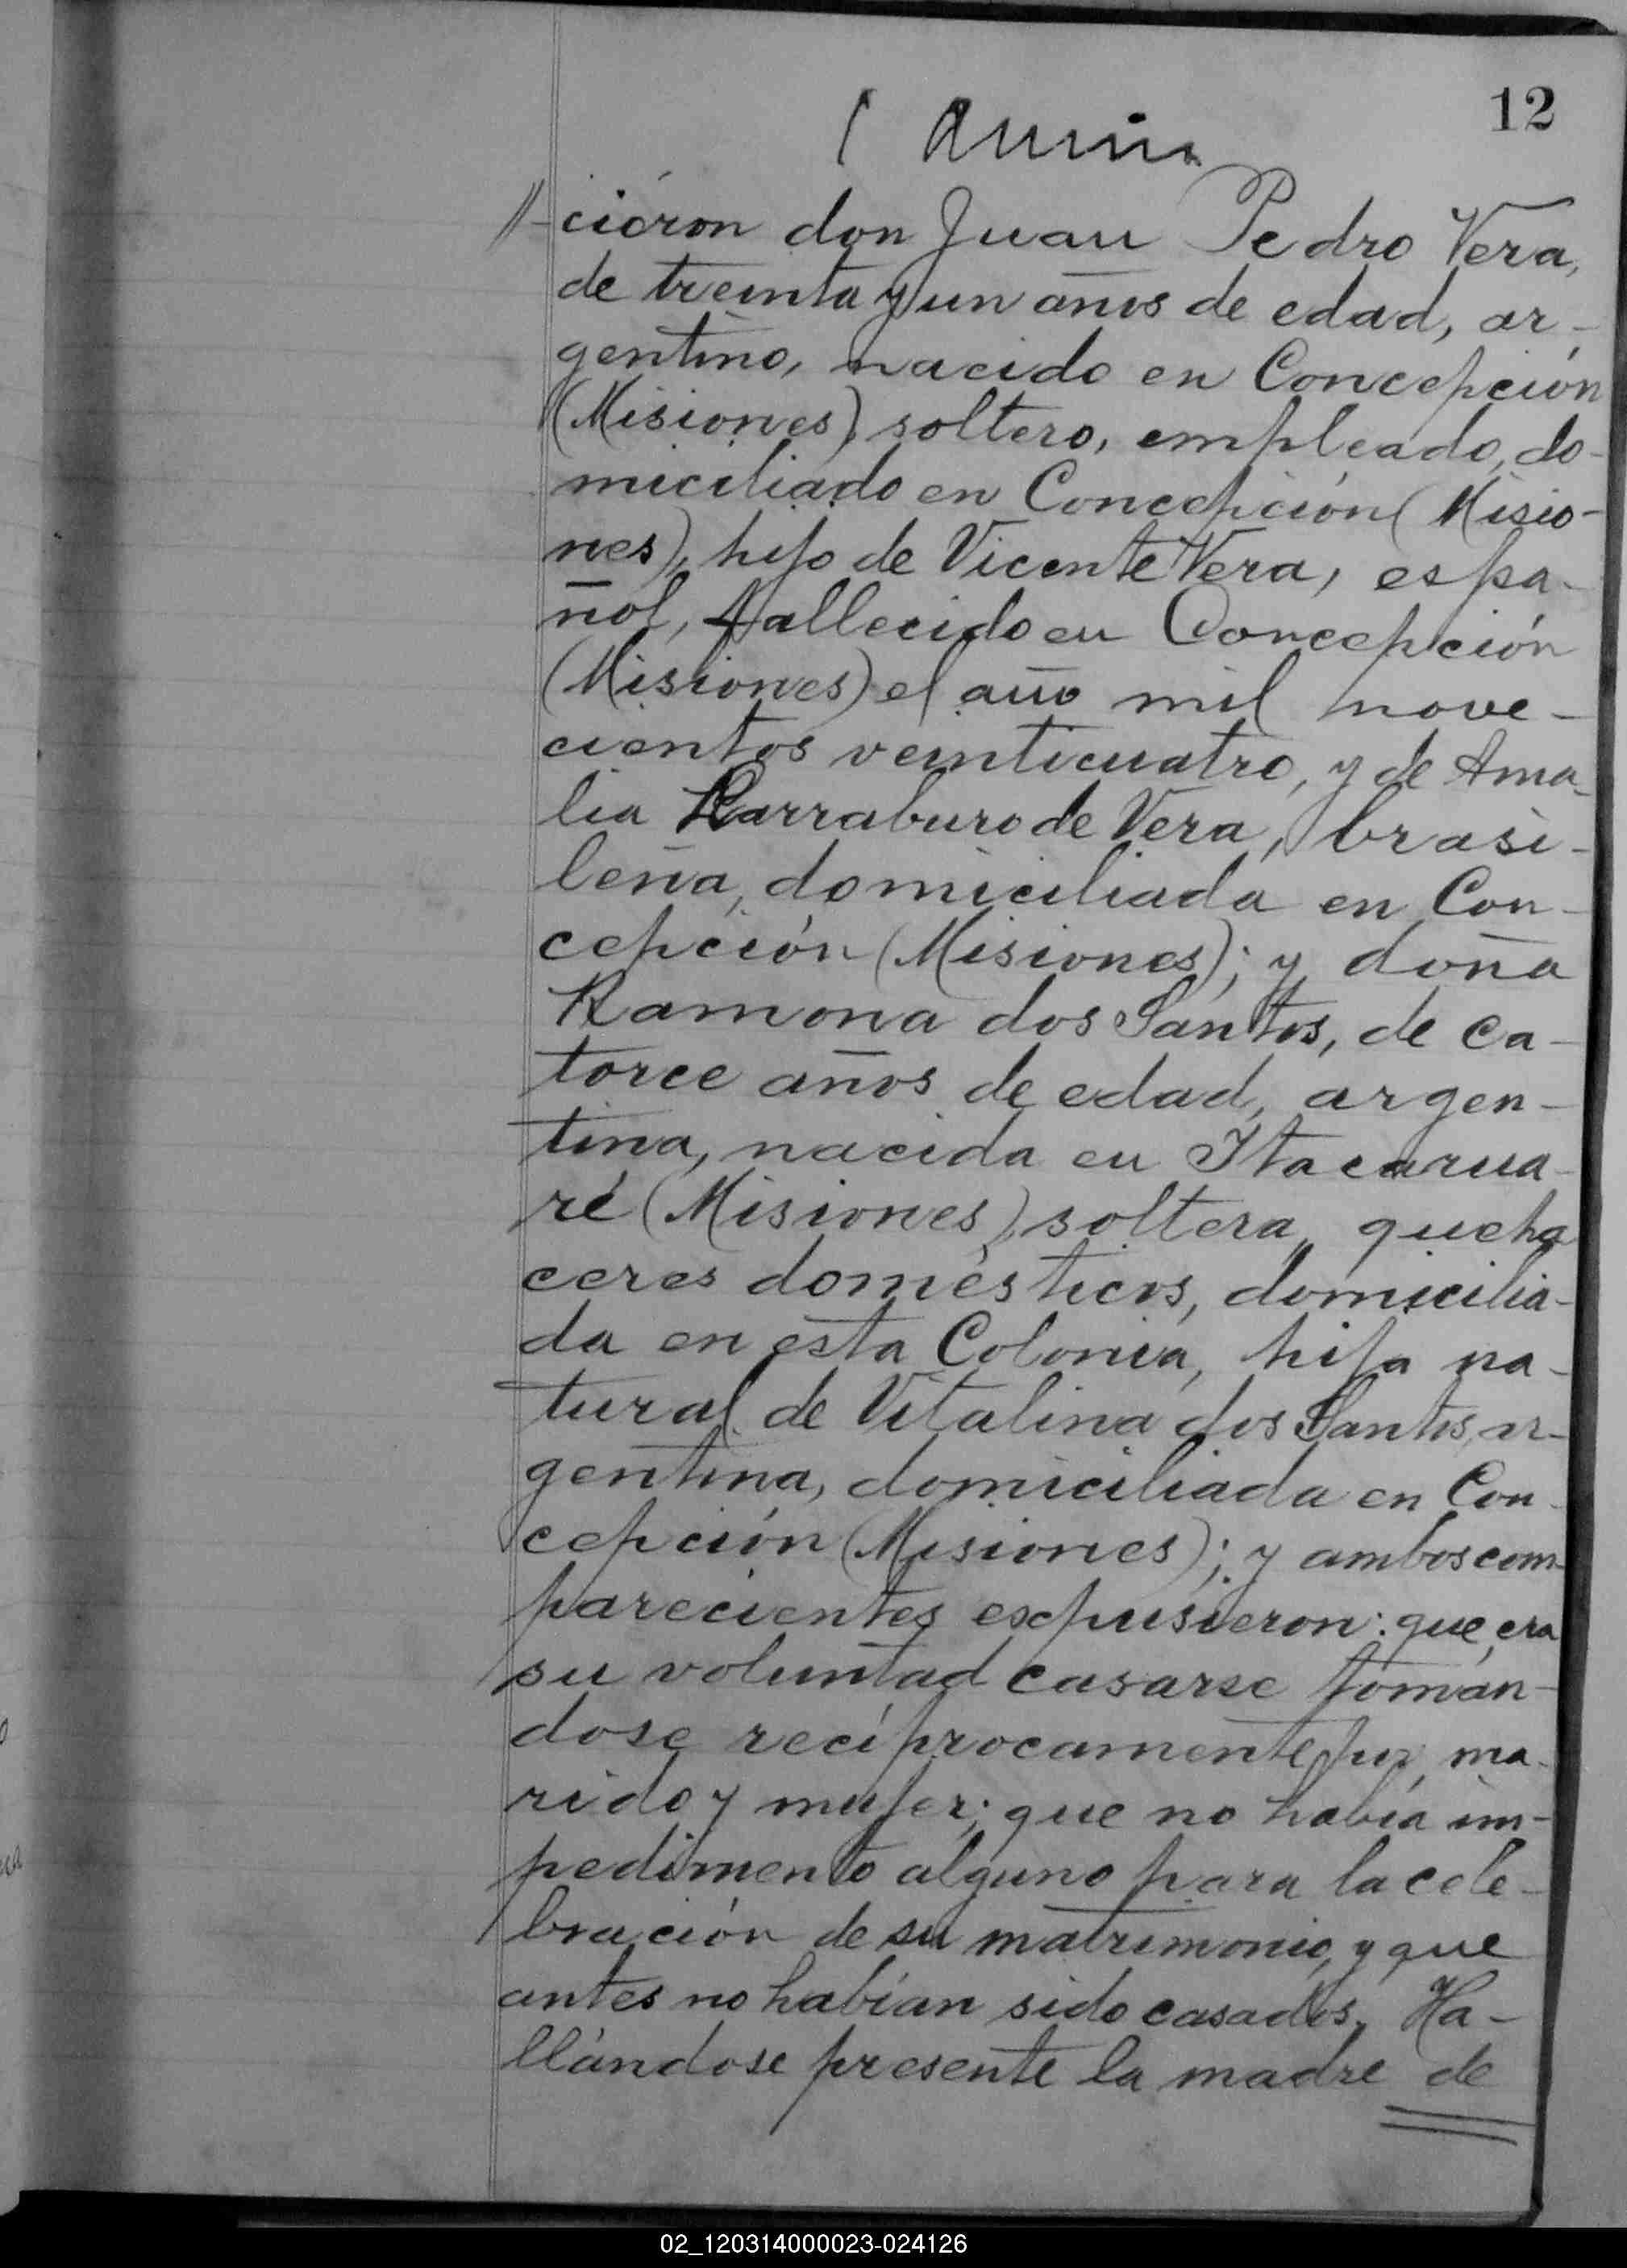 12
//-cieron don Juan Pedro Vera,
de treinta y un años de edad, ar-
gentino, nacido en Concepción
(Misiones), soltero, empleado, do-
miciliado en Concepción (Misio-
nes), hijo de Vicente Vera, espa-
ñol, fallecido en Concepción
(Misiones) el año mil nove-
cientos veinticuatro, y de Ama-
lia Larraburo de Vera, brasi-
leña, domiciliada en Con-
cepción (Misiones); y doña
Ramona dos Santos, de ca-
torce años de edad, argen-
tina, nacida en Itacarua-
ré (Misiones), soltera, queha
ceres domésticos, domicilia-
da en ésta Colonia, hija na-
tural de Vitalina dos Santos, ar-
gentina, domiciliada en Con-
cepción (Misiones); y ambos com-
parecientes expusieron: que era
su voluntad casarse tomán-
dose recíprocamente por ma-
rido y mujer; que no había im-
pedimento alguno para la cele-
bración de su matrimonio, y que
antes no habían sido casados. Ha-
llándose presente la madre de
02_120314000023-024126